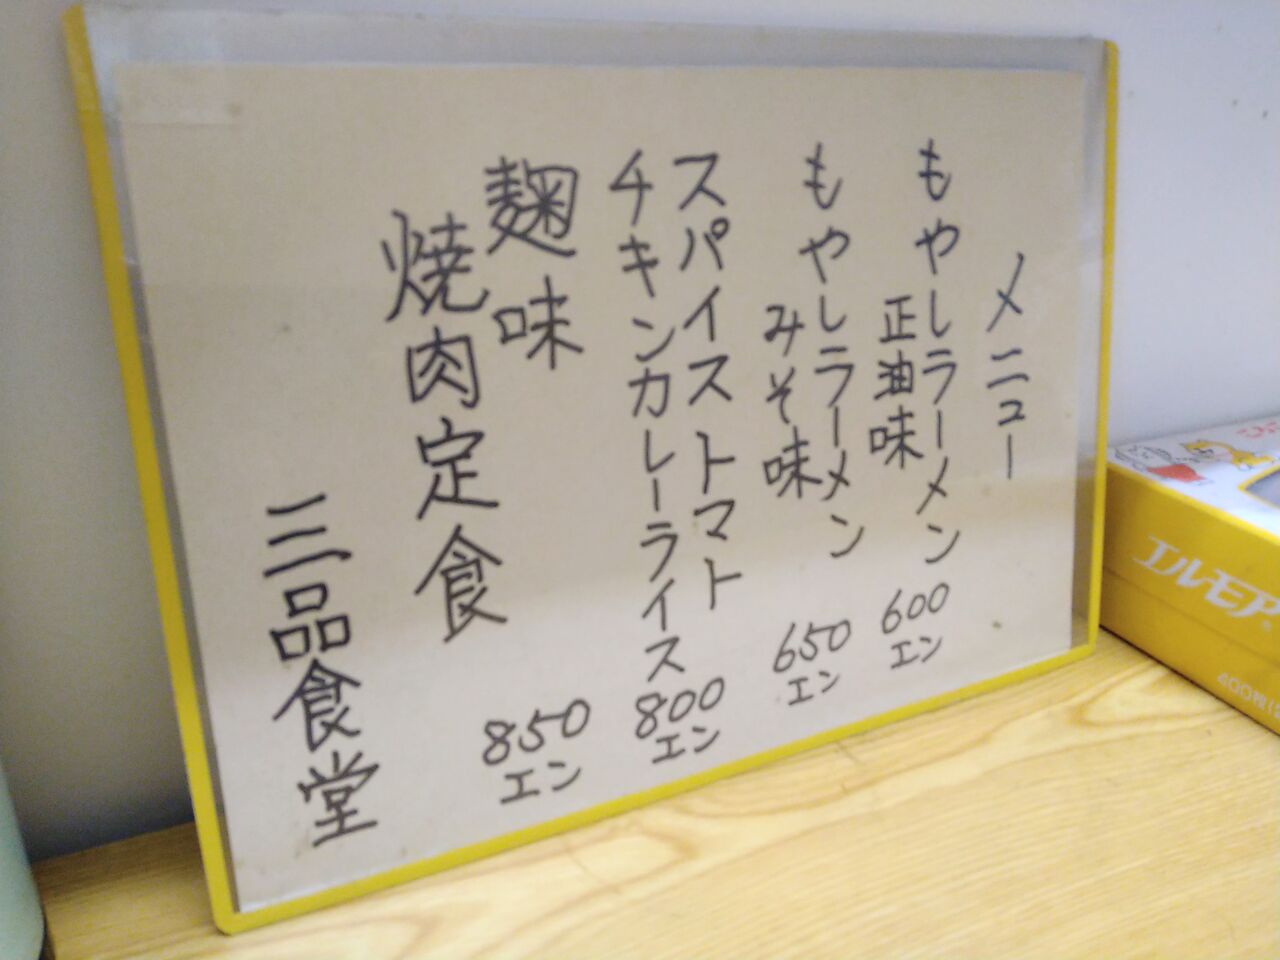 メニュー
もやしラーメン
正油味
600
エン
もやしラーメン
みそ味
650
エン
スパイストマト
チキンカレーライス
800
エン
麹味
焼肉定食
850
エン
三品食堂
エルモア